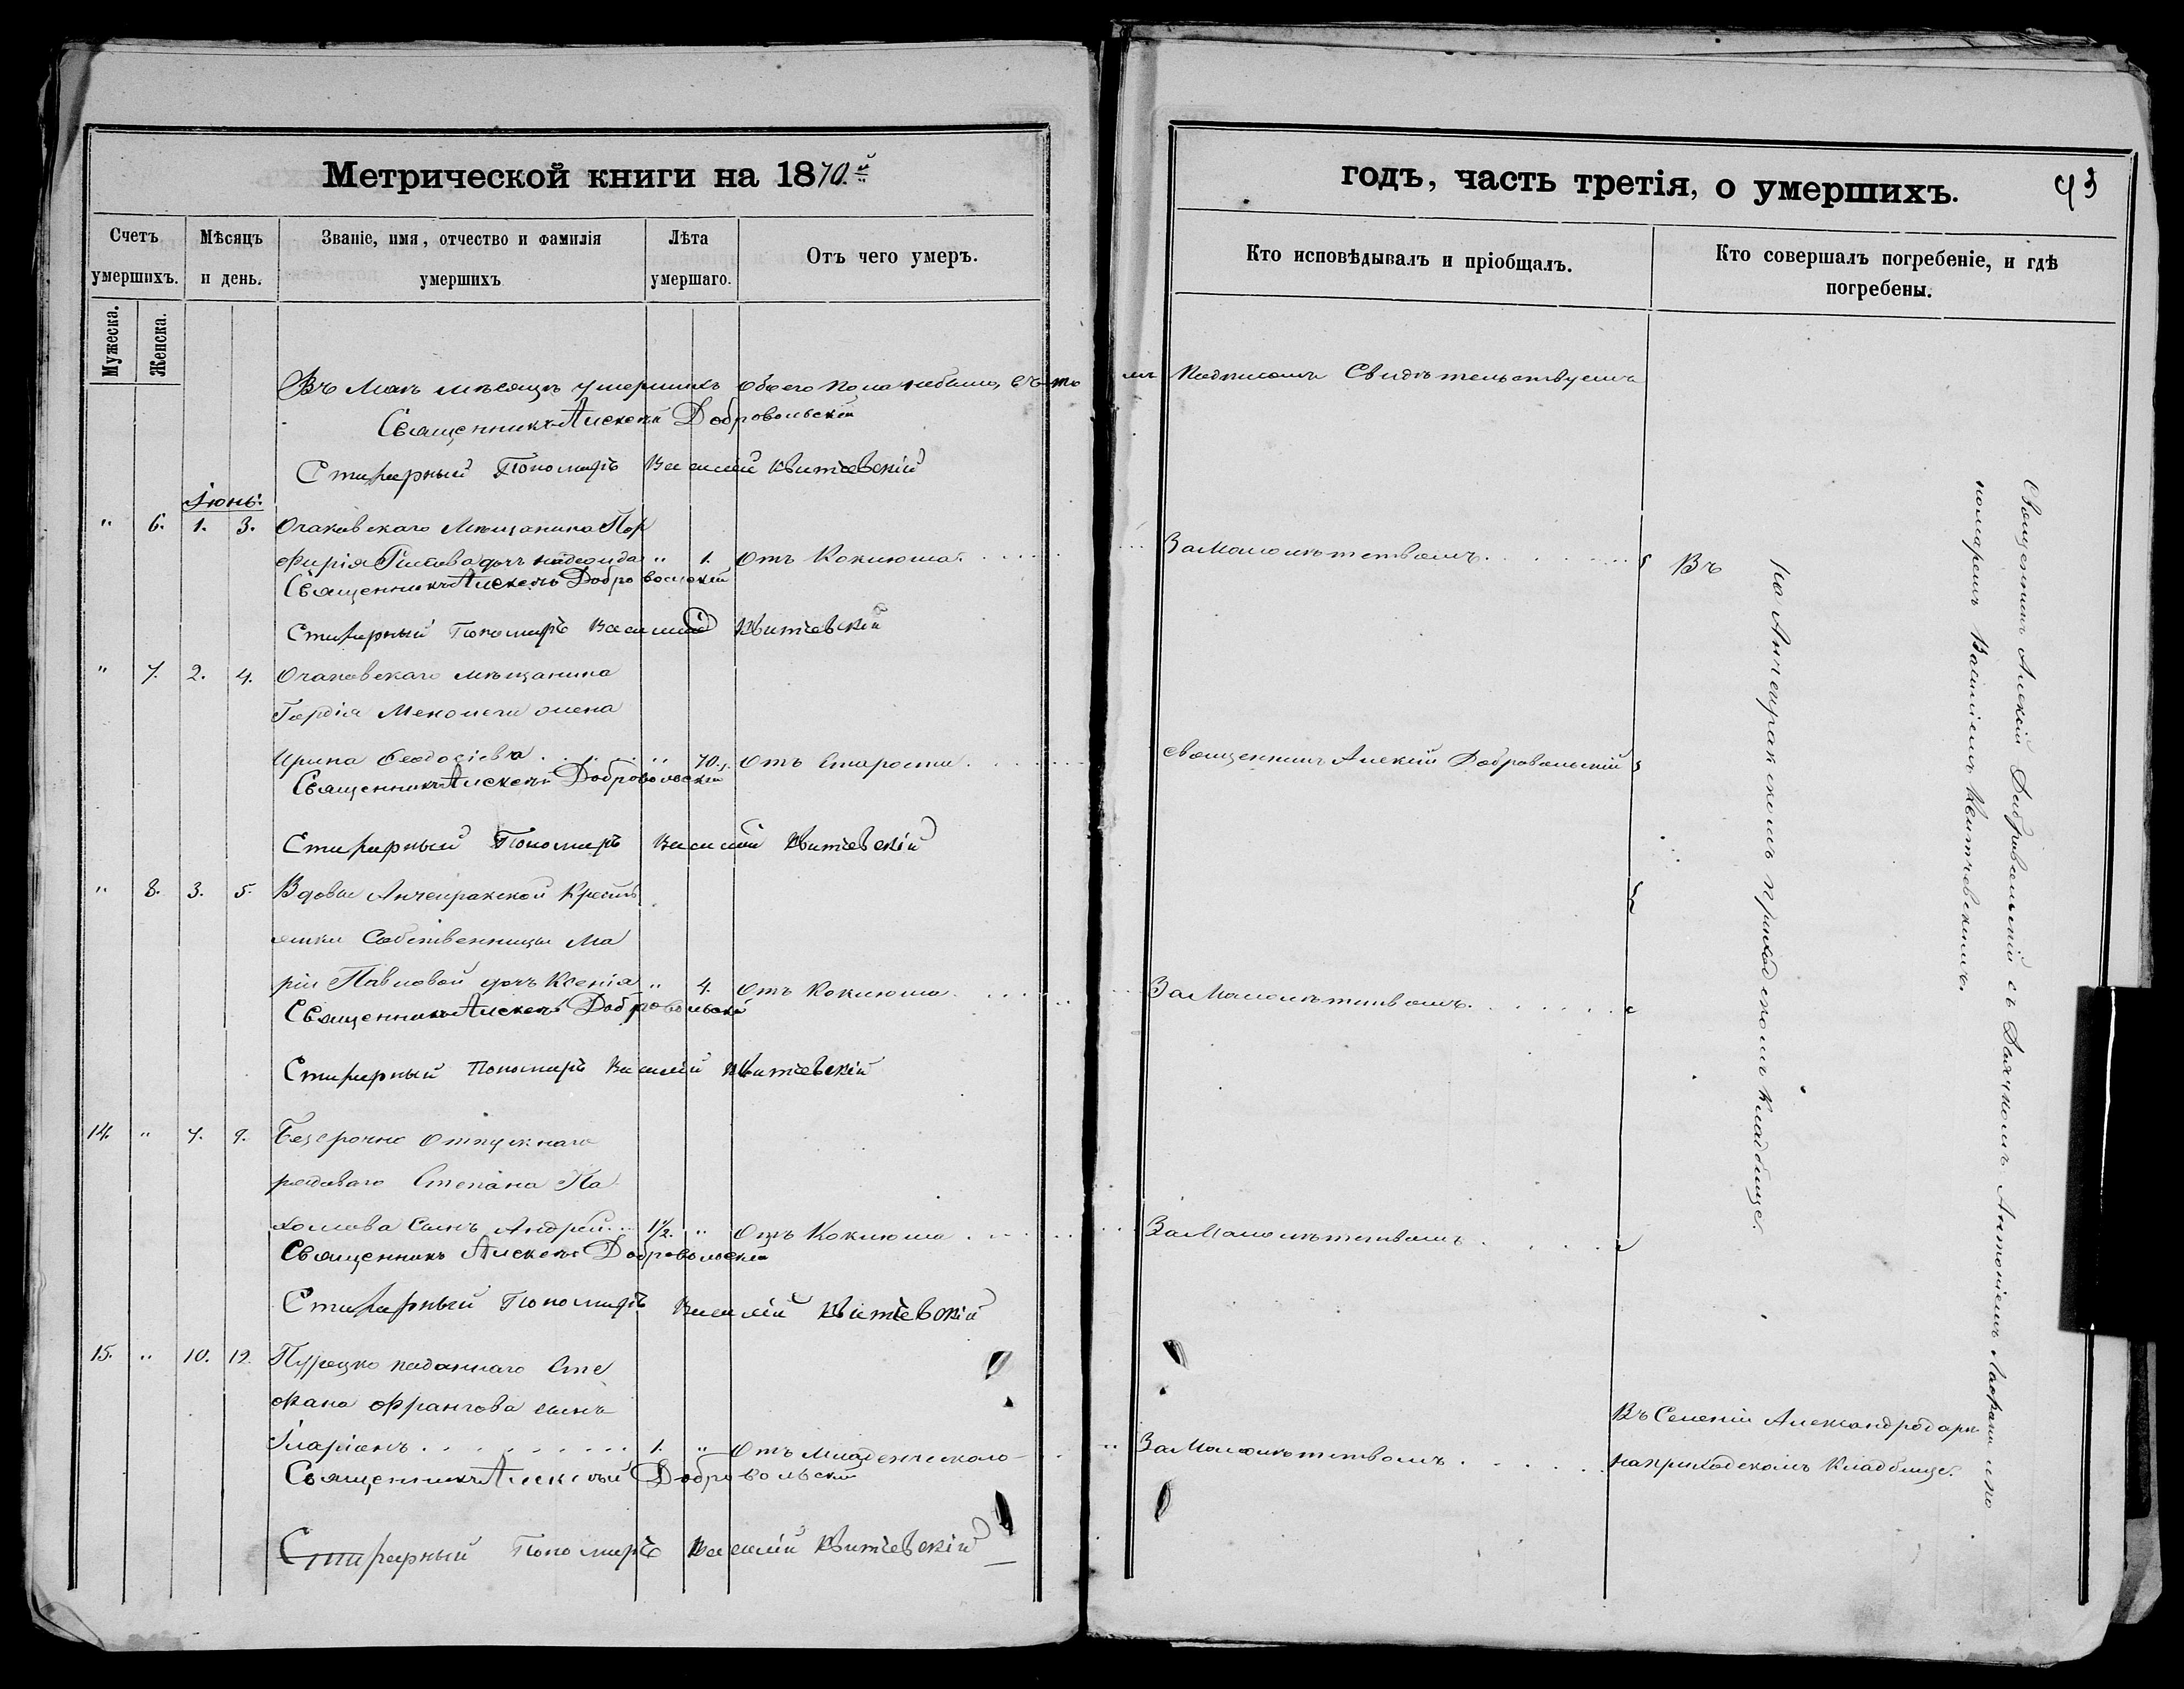 Метрической книги на 1870.й
годъ, часть третія, о умершихъ.
Счетъ умершихъ.
Мѣсяцъ и день.
Званіе, имя, отчество и фамилія умершихъ
Лѣта умершаго.
Отъ чего умеръ.
Кто исповѣдывалъ и пріобщалъ.
Кто совершалъ погребеніе, и гдѣ погребены.
Мужеска.
Женска.
Въ Маѣ мѣсяцѣ умершихъ обоего пола небыло, въ томъ подписомъ Свидѣтельствуемъ
Священникъ Алексѣй Добровольскій
Пономарь Василій Квитчевскій
Іюнь.
" 6. 1. 3. Очаковскаго Мѣщанина Пор
фирія дочь Надежда " 1. Отъ Коклюша. За Малолѣтствомъ. Въ
Священникъ Алексѣй Добровольскій
Пономарь Василій Квитчевскій
" 7. 2. 4. Очаковскаго мѣщанина
Гордія жена
Ирина Ѳеодосіева " 70. Отъ Старости. священникъ Алексій Добровольскій
Священникъ Алексѣй Добровольскій
Пономарь Василій Квитчевскій
" 8. 3. 5. Вдовы Анчекракской Кресть
янки Собственницы Ма
ріи Павловой дочь Ксенія " 4. Отъ Коклюша. За Малолѣтствомъ.
Священникъ Алексѣй Добровольскій
Пономарь Василій Квитчевскій
14. " 7. 9. Безсрочно отпускнаго
рядоваго Степана Па
хомова Сынъ Андрей 1½. " Отъ Коклюша. За Малолѣтствомъ.
Священникъ Алексѣй Добровольскій
Пономарь Василій Квитчевскій
15. " 10. 12. Турецко подданнаго Сте
фана Франгова сынъ
Іларіонъ 1. " Отъ Младенческаго За Малолѣтствомъ.
Священникъ Алексѣй Добровольскій
Пономарь Василій Квитчевскій
на Анчекракскомъ приходскомъ Кладбище.
Въ Селеніи Александродаръ
на приходскомъ Кладбище.
Священникъ Алексій Добровольскій съ Дьячкомъ Антоніемъ и по
номаремъ Василіемъ Квитчевскимъ.